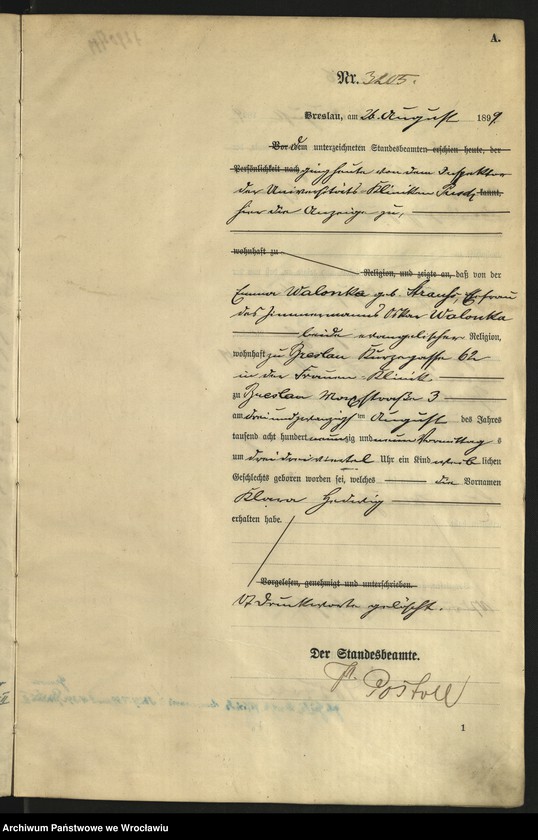 A.
Nr. 3205.
Breslau, am 26. August 1899.
Vor dem unterzeichneten Standesbeamten erschien heute, der
Persönlichkeit nach ging heute von dem Inspektor
der Universitäts-Kliniken kannt,
hier die Anzeige zu,
wohnhaft zu
Religion, und zeigte an, daß von der
Emma Walonka geb. Strauß, Ehefrau
des Zimmermanns Oskar Walonka
beide evangelischer Religion,
wohnhaft zu Breslau Kurzegasse 62
in der Frauen-Klinik
zu Breslau Maxstraße 3
am dreiundzwanzigsten August des Jahres
tausend acht hundert neunzig und neun Vormittags
um drei dreiviertel Uhr ein Kind weiblichen
Geschlechts geboren worden sei, welches die Vornamen
Klara Hedwig
erhalten habe.
Vorgelesen, genehmigt und unterschrieben.
17 Druckworte gelöscht.
Der Standesbeamte.
1
Archiwum Państwowe we Wrocławiu